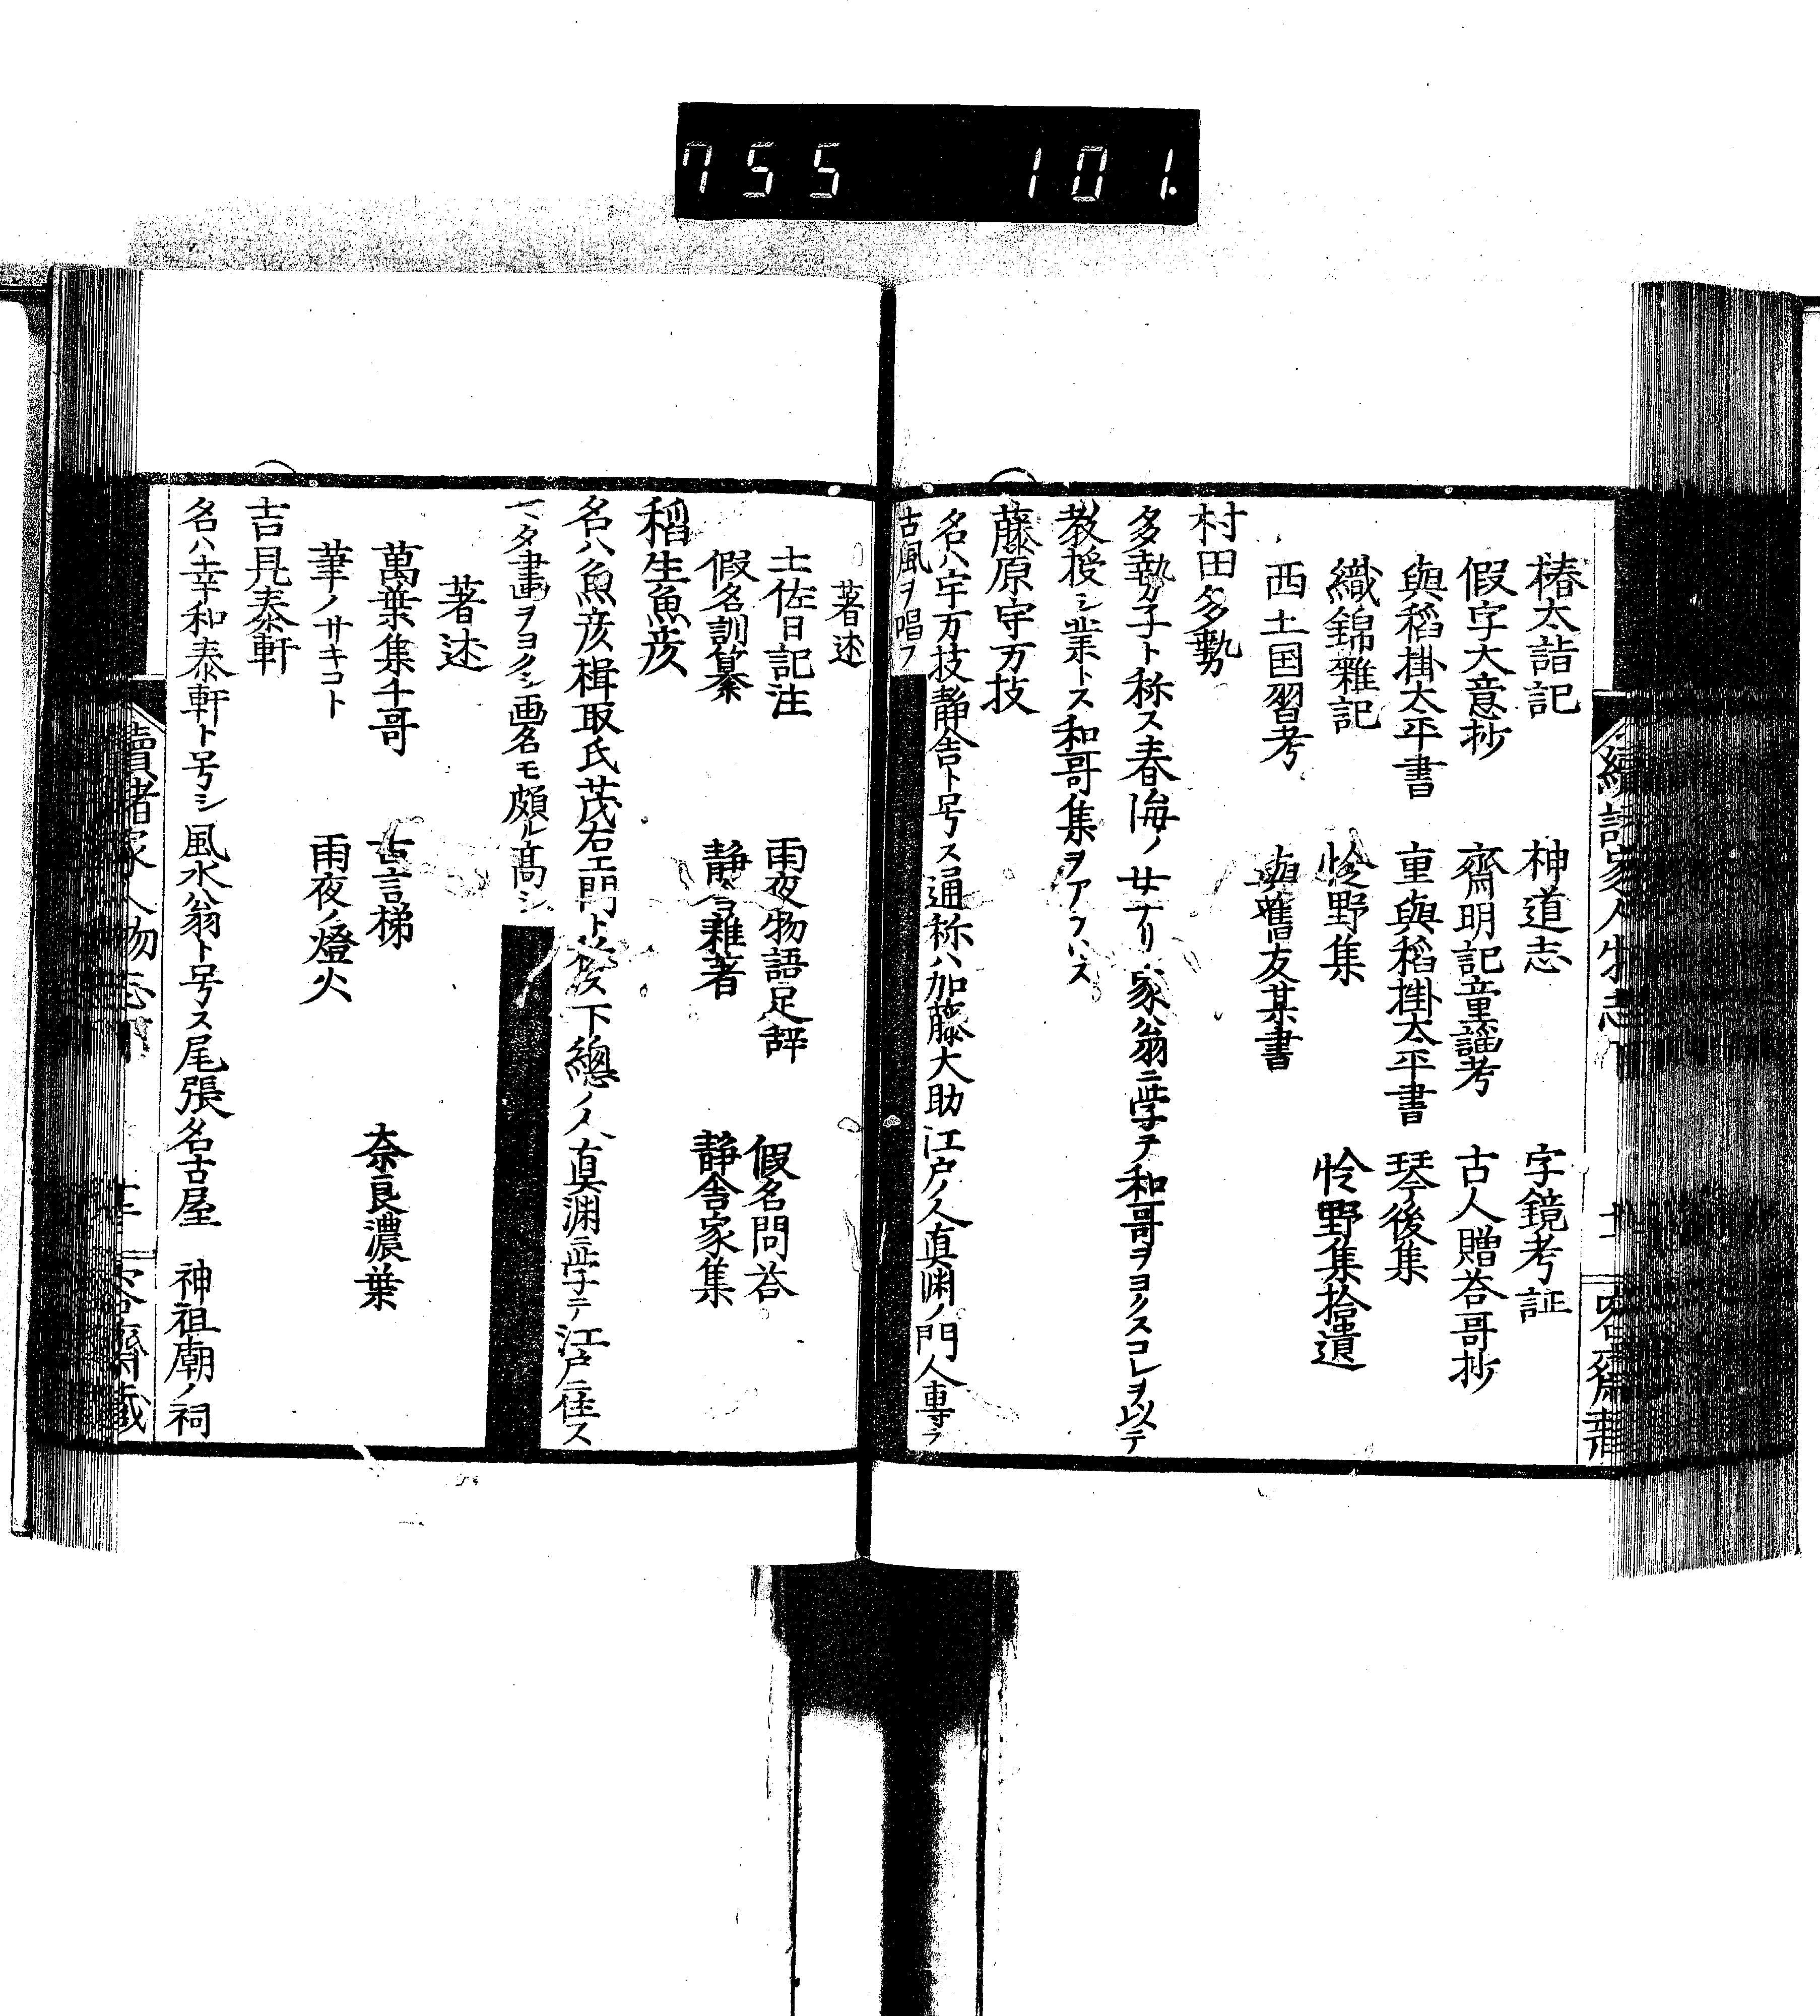 755 101.
椿太詣記 神道志 字鏡考証
假字大意抄 齋明記童謡考 古人贈荅哥抄
與稻掛太平書 重與稻掛太平書 琴後集
織錦雜記 怜野集 怜野集拾遺
西土国習考 與舊友某書
村田多勢
多勢子ト称ス春海ノ女ナリ家翁ニ学テ和哥ヲヨクスコレヲ以テ
教授シ業トス和哥集ヲアラハス
藤原宇万技
名ハ宇万技静舎ト号ス通称ハ加藤大助江戸ノ人真渊ノ門人專ラ
古風ヲ唱フ
著述
土佐日記注 雨夜物語足辞 假名問荅
假名訓纂 静舎雜著 静舎家集
稻生魚彦
名ハ魚彦楫取氏茂右エ門ト称ス下總ノ人真渊ニ学テ江戸ニ住ス
マタ畫ヲヨクシ画名モ頗ル高シ
著述
萬葉集千哥 古言梯 奈良濃葉
筆ノサキコト 雨夜ノ燈火
吉見泰軒
名ハ幸和泰軒ト号シ風水翁ト号ス尾張名古屋 神祖廟ノ祠
續諸家人物志